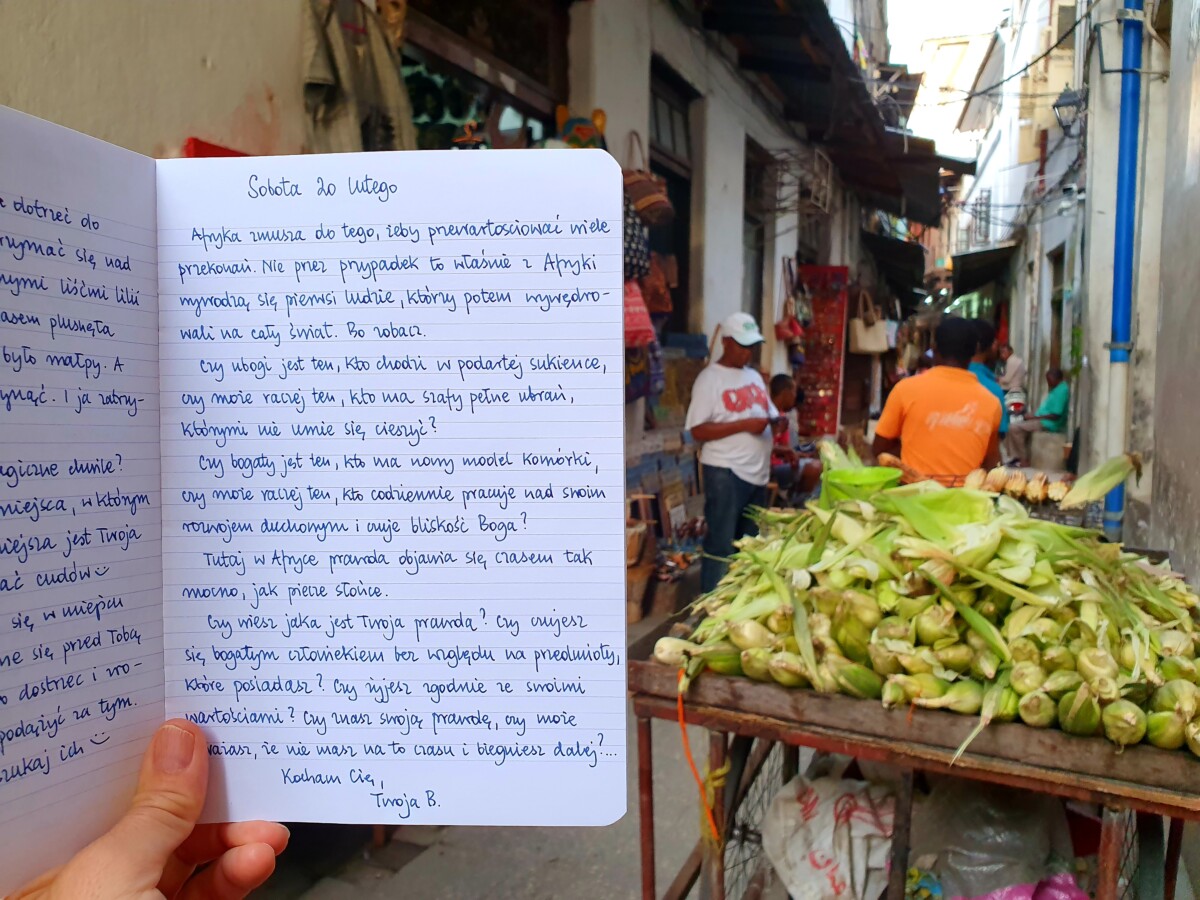 dotrzeć do
rzymać się nad
nymi liśćmi lilii
asem plusnęła
było małpy. A
ynąć. I ja zatrzy-
agiczne chwile?
miejsca, w którym
iejsza jest Twoja
ać cudów
się w miejscu
ne się przed Tobą
dostrzec i wo-
podążyć za tym.
zukaj ich
Sobota 20 lutego
Afryka zmusza do tego, żeby przewartościować wiele
przekonań. Nie przez przypadek to właśnie z Afryki
wywodzą się pierwsi ludzie, którzy potem wywędro-
wali na cały świat. Bo zobacz.
Czy ubogi jest ten, kto chodzi w podartej sukience,
czy może raczej ten, kto ma szafy pełne ubrań,
którymi nie umie się cieszyć?
Czy bogaty jest ten, kto ma nowy model komórki,
czy może raczej ten, kto codziennie pracuje nad swoim
rozwojem duchowym i czuje bliskość Boga?
Tutaj w Afryce prawda objawia się czasem tak
mocno, jak piecze słońce.
Czy wiesz jaka jest Twoja prawda? Czy czujesz
się bogatym człowiekiem bez względu na przedmioty,
które posiadasz? Czy żyjesz zgodnie ze swoimi
wartościami? Czy znasz swoją prawdę, czy może
uważasz, że nie masz na to czasu i biegniesz dalej?...
Kocham Cię,
Twoja B.